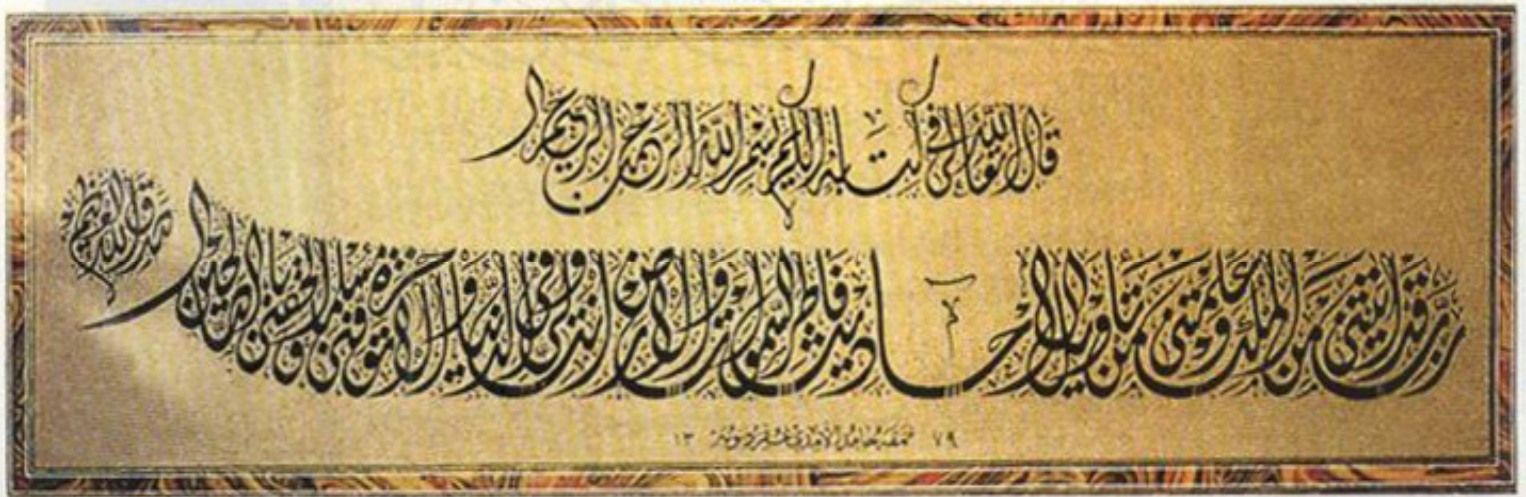 قال الله تعالى في كتابه الكريم بسم الله الرحمن الرحيم
رب قد آتيتني من الملك وعلمتني من تأويل الأحاديث فاطر السموات والأرض أنت وليي في الدنيا والآخرة توفني مسلما وألحقني بالصالحين
صدق الله العظيم
١٣ حامد الآمدي ٧٩